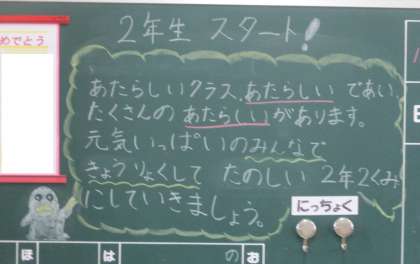 2年生 スタート!
めでとう
あたらしいクラス、あたらしい であい
たくさんの あたらしいがあります。
元気いっぱいのみんなで
きょうりょくして たのしい 2年2くみ
にしていきましょう。
にっちょく
ほ は のお